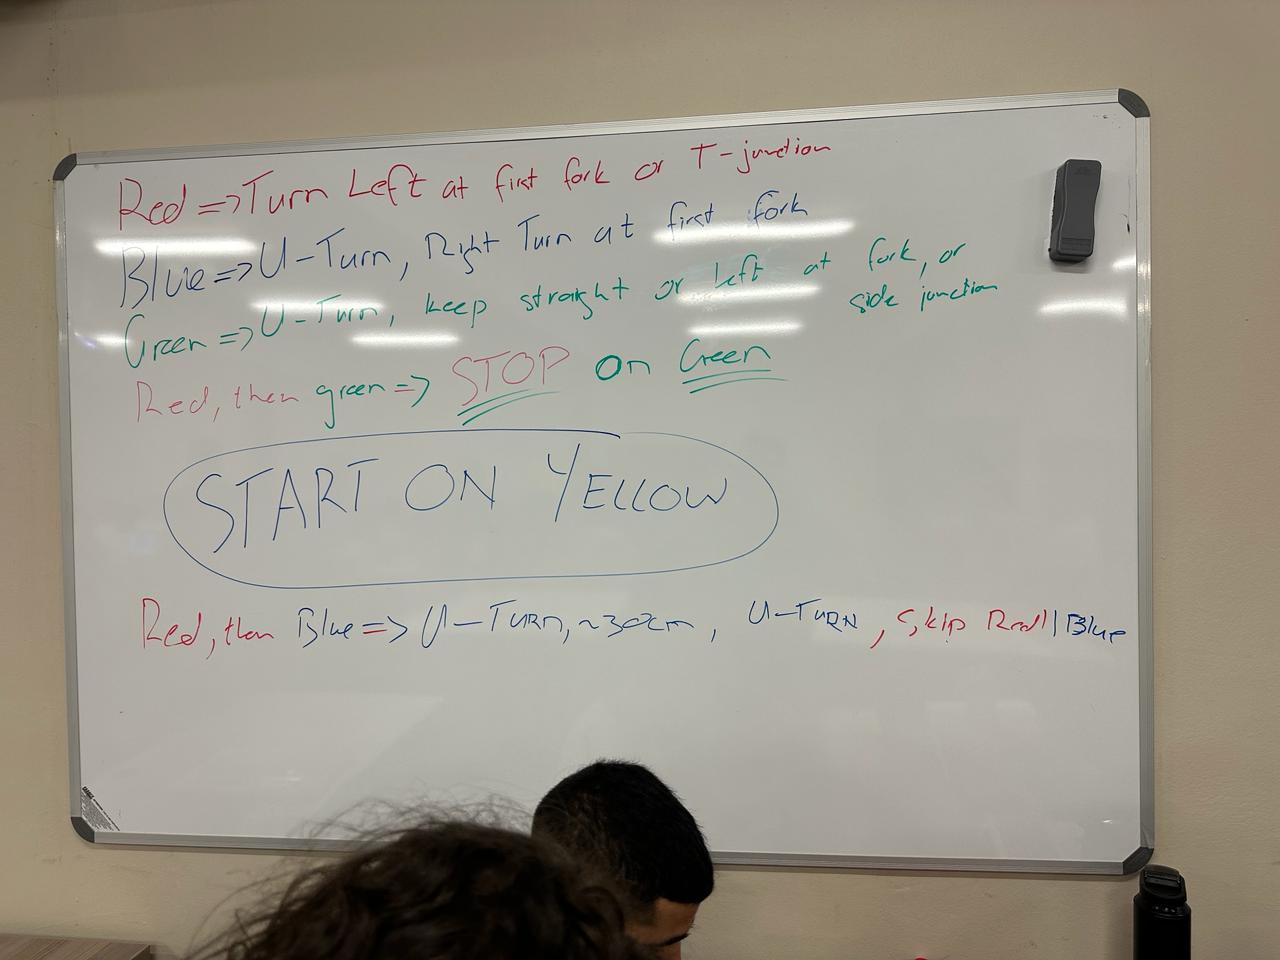 Red => Turn Left at first fork or T-junction
Blue => U-Turn, Right Turn at first fork
Green => U-Turn, keep straight or left at fork, or
side junction
Red, then green => STOP on Green
START ON YELLOW
Red, then Blue => U-TURN, ~30cm, U-TURN, Skip Red||Blue